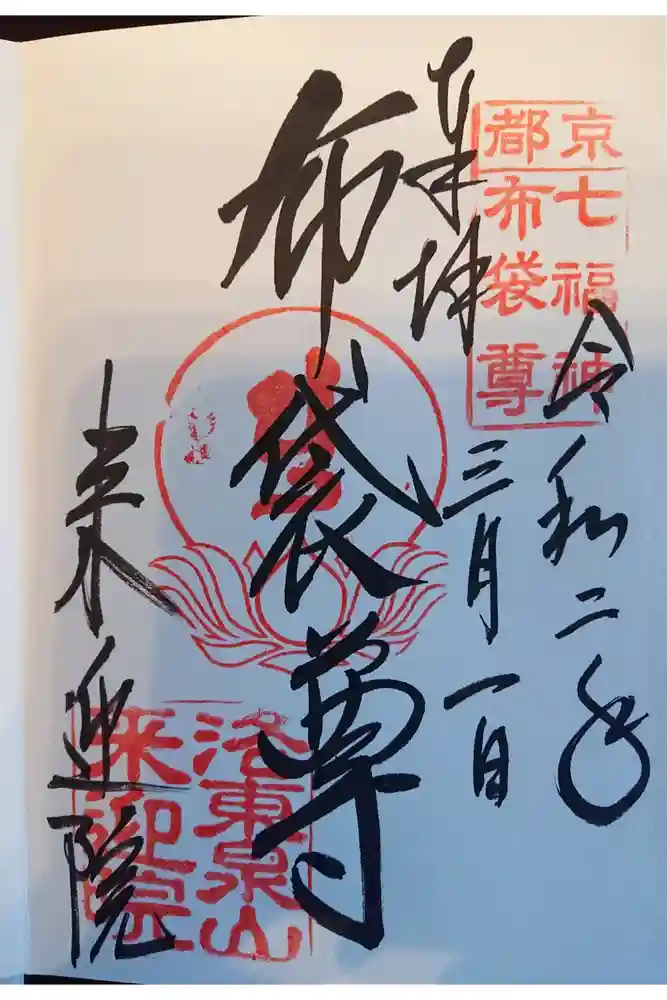 京七福神
都布袋尊
令和二年
三月一日
奉拝
布袋尊
洛東泉山
来迎院
来迎院